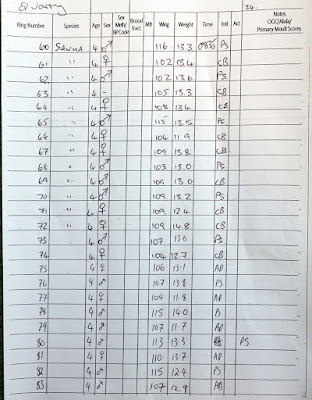 24.
Ring Number Species Age Sex Sex Meth/ BP Code Brood Pact Mlt Wing Weight Time Init Act Notes OGC/Kluij/ Primary Moult Scores
60 4 ♂ 116 13.3 PS
61 " 4 ♀ 102 13.4 CB
62 " 4 ♂ 102 13.6 PS
63 " 4 - 105 13.3 CB
64 " 4 ♀ 108 13.4 CB
65 " 4 ♂ 115 13.5 PS
66 " 4 ♀ 104 11.9 CB
67 " 4 ♀ 109 13.8 CB
68 " 4 ♂ 103 13.0 PS
69 " 4 ♂ 109 13.0 CB
70 " 4 ♂ 109 13.2 PS
71 " 4 ♀ 109 12.4 CB
72 " 4 ♀ 109 14.8 CB
73 4 ♂ 107 13.0 PS
74 4 ♀ 104 12.7 CB
75 4 ♀ 106 13.1 AD
76 4 ♀ 107 13.8 PS
77 4 ♀ 109 11.8 AD
78 4 ♂ 115 14.0 PS
79 4 ♂ 107 11.7 AD
80 4 ♂ 113 13.3 PS
81 4 ♀ 110 13.7 AD
82 4 ♂ 115 12.4 PS
83 4 ♂ 107 12.9 AD